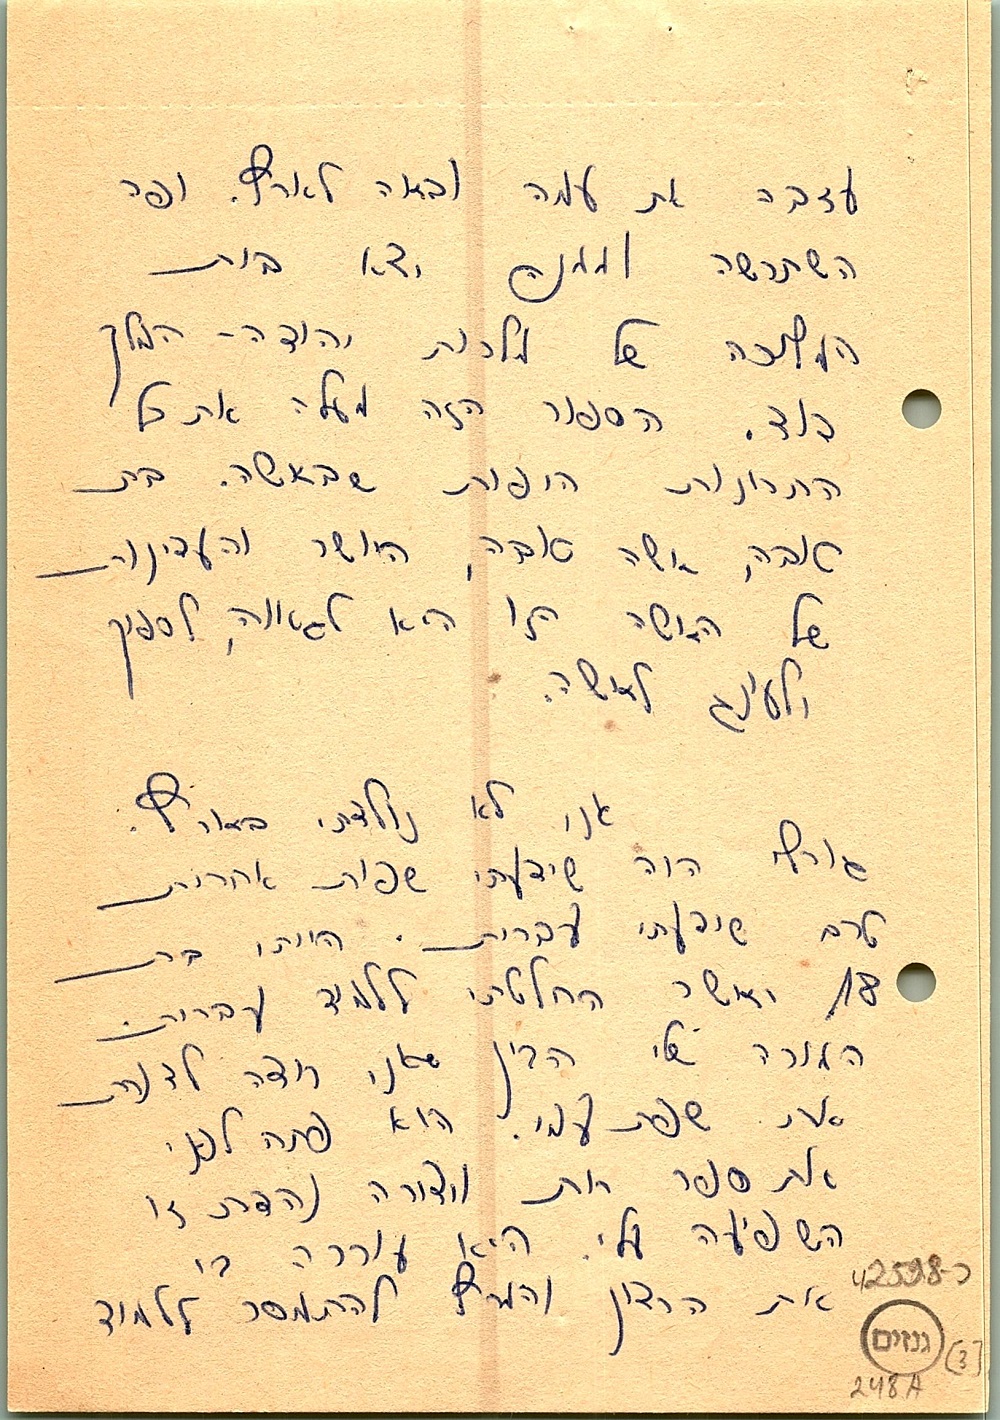 עזבה את עמה ובאה לארץ. ופה
השתרשה וממנה יצא בית
המלוכה של מלכות יהודה - המלך
דוד. הספור הזה מעלה את כל
התכונות היפות שבאשה. בת
טובה, אשה טובה, האושר והעדינות
של האשה הזו היא לגאוה, לספוק
ולעונג לאשה.
אני לא נולדתי בארץ.
גורלי היה שידעתי שפות אחרות
טרם שידעתי עברית. הייתי בת
18 כאשר החלטתי ללמוד עברית.
המורה שלי הבין שאני רוצה לדעת
את שפת עמי. הוא פתח לפני
את ספר רות ויצירה נהדרת זו
השפיעה עלי. היא עוררה בי
את הרצון והמרץ להתמסר ללמוד
42598-כ
גנזים
[3]
248 A